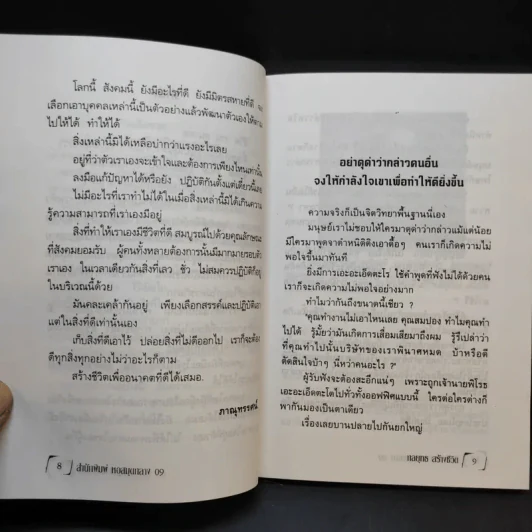 โลกนี้ สังคมนี้ ยังมีอะไรที่ดี ยังมีมิตรสหายที่ดี
เลือกเอาบุคคลเหล่านี้เป็นตัวอย่างแล้วพัฒนาตัวเองให้
ไปให้ได้ ทำให้ได้
สิ่งเหล่านี้มิได้เหลือบ่ากว่าแรงอะไรเลย
อยู่ที่ว่าตัวเราเองจะเข้าใจและต้องการเพียงไหนเท่านั้น
ลงมือแก้ปัญหาได้หรือยัง ปฏิบัติกันตั้งแต่เดี๋ยวนี้
ไม่มีอะไรที่เราทำไม่ได้ในเมื่อสิ่งเหล่านี้มิได้เกินความ
รู้ความสามารถที่เรามีอยู่
สิ่งที่ทำให้เราเองมีชีวิตที่ดี สมบูรณ์ไปด้วยคุณลักษณะ
ที่สังคมยอมรับ ผู้คนทั้งหลายต้องการนั้นมีมากมายรอบตัว
เราเอง ในเวลาเดียวกันสิ่งที่เลว ชั่ว ไม่สมควรปฏิบัติก็อยู่
ในบริเวณนี้ด้วย
มันคละเคล้ากันอยู่ เพียงเลือกสรรค์และปฏิบัติ
แต่ในสิ่งที่ดีเท่านั้นเอง
เก็บสิ่งที่ดีเอาไว้ ปล่อยสิ่งที่ไม่ดีออกไป เราก็จะต้อง
ดีทุกสิ่งทุกอย่างไม่ว่าอะไรก็ตาม
สร้างชีวิตเพื่ออนาคตที่ดีได้เสมอ.
ภาณุทรรศน์
8 สำนักพิมพ์ หอสมุดกลาง 09
อย่าดุด่าว่ากล่าวคนอื่น
จงให้กำลังใจเขาเพื่อทำให้ดียิ่งขึ้น
ความจริงก็เป็นจิตวิทยาพื้นฐานนี่เอง
มนุษย์เราไม่ชอบให้ใครมาดุด่าว่ากล่าวแม้แต่น้อย
มีใครมาพูดจาตำหนิติติงเอาดื้อๆ คนเราก็เกิดความไม่
พอใจขึ้นมาทันที
ยิ่งมีการเอะอะเอ็ดตะโร ใช้คำพูดที่ฟังไม่ได้ด้วยคน
เราก็จะเกิดความไม่พอใจอย่างมาก
ทำไมว่ากันถึงขนาดนี้เชียว ?
"คุณทำงานไม่เอาไหนเลย คุณสมปอง ทำไมคุณทำ
ไปได้ รู้มั้ยว่ามันเกิดการเสื่อมเสียมาถึงผม รู้รึเปล่าว่า
ที่คุณทำไปนั้นบริษัทของเราพินาศหมด บ้าหรือดี
ตัดสินใจบ้าๆ นี่หว่าคนอะไร ?"
ผู้รับฟังจะต้องสะอึกแน่ๆ เพราะถูกเจ้านายพิโรธ
เอะอะเอ็ดตะโตไปทั่วทั้งออฟฟิศแบบนี้ ใครต่อใครต่างก็
พากันมองเป็นตาเดียว
เรื่องเลยบานปลายไปกันยกใหญ่
กลยุทธ สร้างชีวิต 9